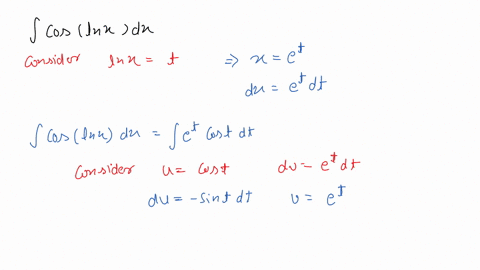 ∫ cos (lnx) dx
Consider lnx = t ⇒ x = e^t
dx = e^t dt
∫ cos (lnx) dx = ∫ e^t cost dt
Consider u = cost dv = e^t dt
du = -sint dt v = e^t